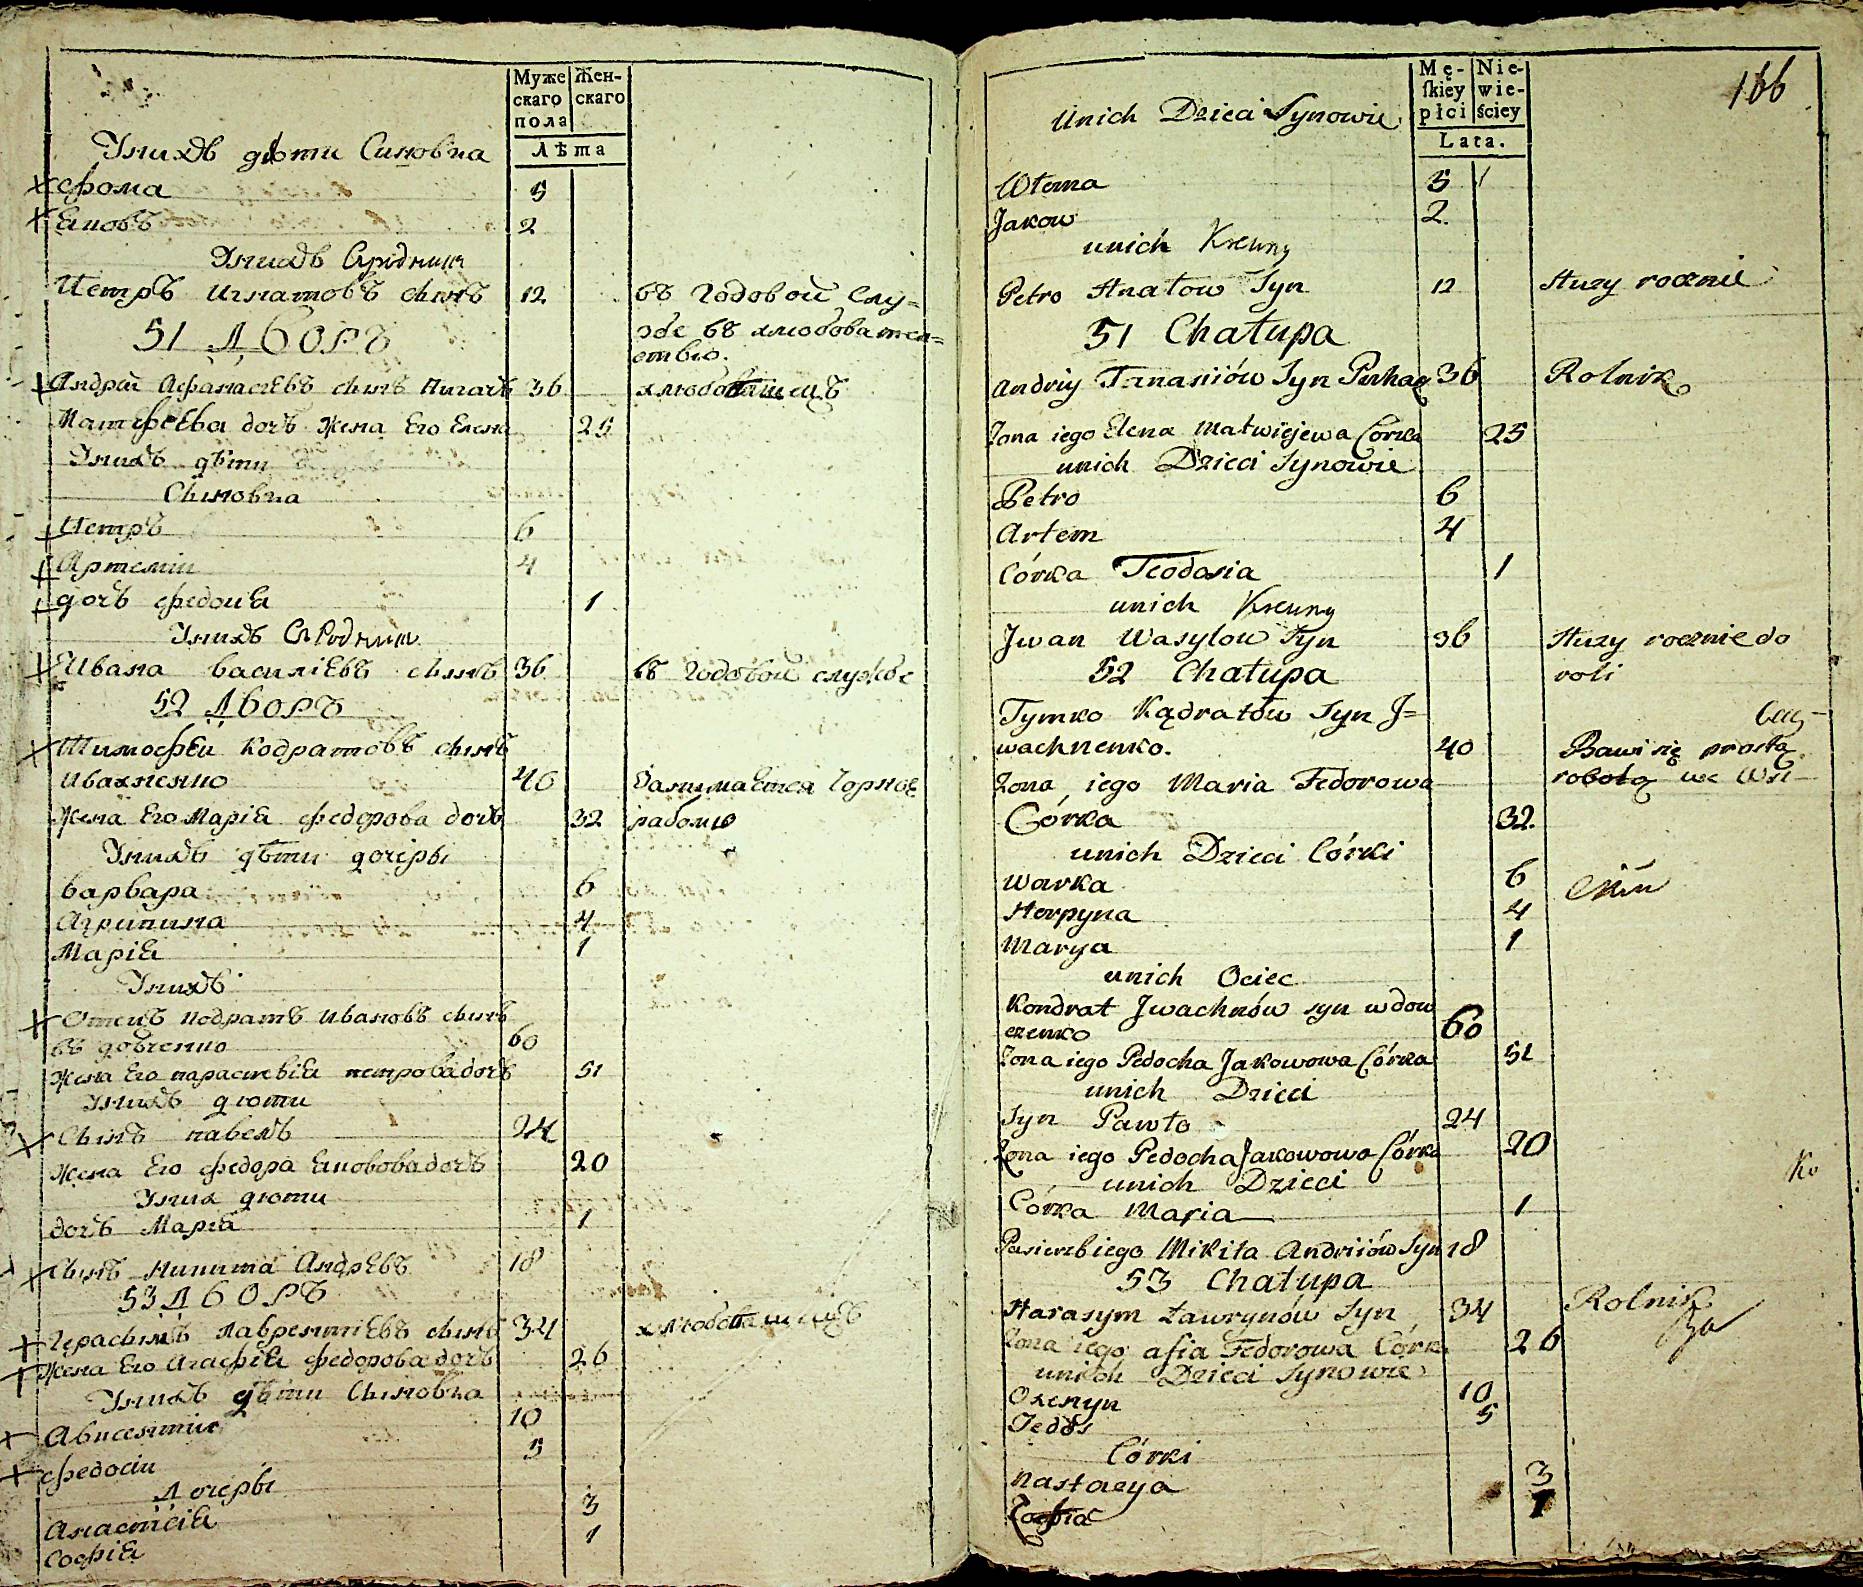 Муже
скаго
пола
Жен-
скаго
Лѣта
Унихъ дѣти Синовиа
Фома 5
Ековъ 2
Унихъ Сродники
Петръ Игнатовъ сынъ 12 въ годовой слу=
жбе въ
51 Дворъ
Андрей Афанасіевъ сынъ 36
Матфеева дочъ жена Его Елена 25
Унихъ дѣти
Сыновиа
Петръ 6
Артемій 4
дочъ Федоиа 1
Унихъ Сродники
Ивана василіевъ сынъ 36 въ годовой службе
52 Дворъ
Тимофей Кодратовъ сынъ
Ивахненко 40 Занимаетса Чорною
Жена Его Маріа федорова дочъ 32 работою
Унихъ дѣти дочеры
варвара 6
Агрипина 4
Маріа 1
Унихъ
Отецъ Кодратъ Ивановъ сынъ
60
Жена Его параскевіа петрова дочъ 51
Унихъ дюти
Сынъ павелъ 24
Жена Его федора Ековова дочъ 20
Уних дюти
дочъ Маріа 1
Сынъ Никита Андревъ 18
53 Дворъ
Герасимъ Лаврентіевъ сынъ 34
Жена Его Агафіа федорова дочъ 26
Унихъ дѣти Сыновиа
Авксентии 10
федосіи 5
Дочеры
Анастасіа 3
Софіа 1
Mę-
skiey
płci
Nie-
wie-
ściey
Lata.
166
Unich Dzieci Synowie
Wtoma 5
Jakow 2.
unich Krewny
Petro Hnatow Syn 12 Służy rocznie
51 Chałupa
Andriy Tanasiów Syn 36 Rolnik
Żona iego Elena Matwiejewa Córka 25
unich Dzieci Synowie
Petro 6
Artem 4
Córka Teodosia 1
unich Krewny
Jwan Wasylow Syn 36 Służy rocznie do
roli
52 Chałupa
Tymko Kądratów Syn J=
wachnenko. 40 Bawi się prostą
Żona iego Maria Fedorowa robotą we Wsi
Córka 32.
unich Dzieci Córki
Warka 6
Horpyna 4
Marya 1
unich Ociec
Kondrat Jwachnów syn wdow
czenko 60
Żona iego Pedocha Jakowowa Córka 51
unich Dzieci
Syn Pawło 24
Żona iego Pedocha Jakowowa Córka 20
unich Dzieci
Ko
Córka Maria 1
Pasierb iego Mikita Andriiów Syn 18
53 Chałupa
Harasym Ławrynów Syn 34 Rolnik
Żona iego afia Fedorowa Córka 26
unich Dzieci Synowie
Oxenyn 10
Fedos 5
Córki
Nastazya 3
Zofia 1